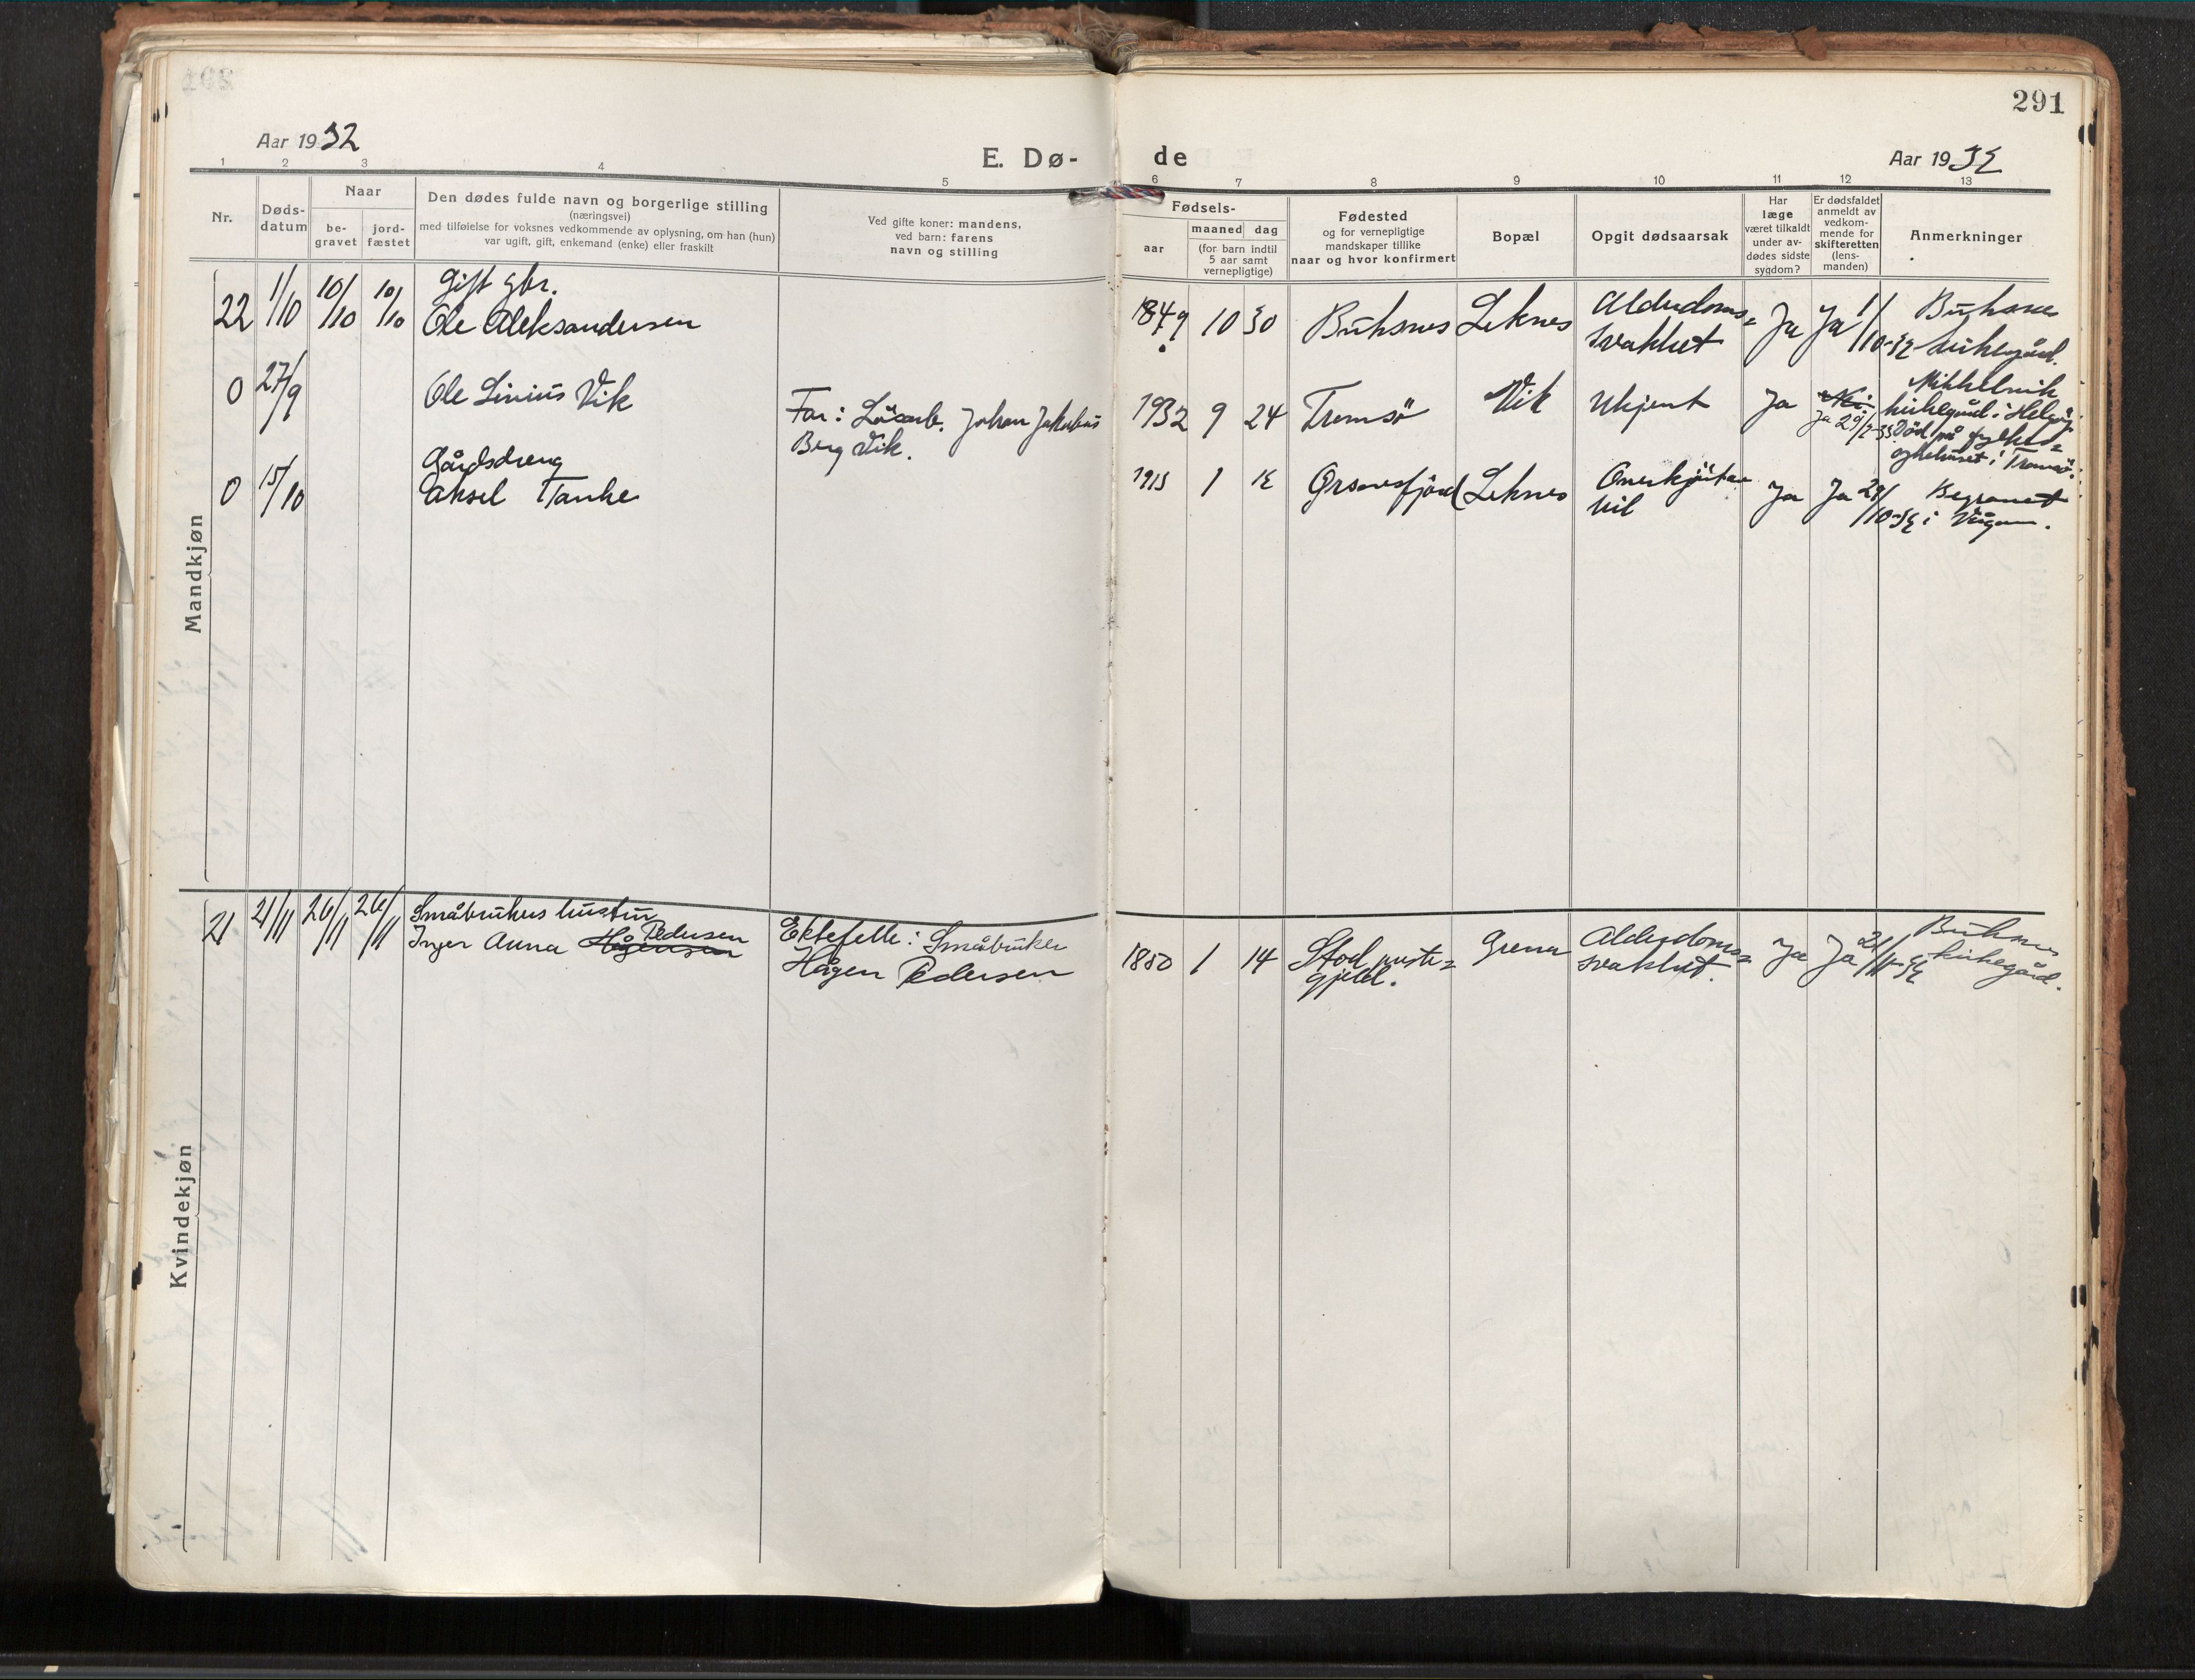 291
Aar 1932
E. Dø-
de
Aar 1932
1 2 3 4 5
6 7 8 9 10 11 12 13
Nr.
Døds-
datum
Naar
be-
gravet
jord-
fæstet
Den dødes fulde navn og borgerlige stilling
(næringsvei)
med tilføielse for voksnes vedkommende av oplysning, om han (hun)
var ugift, gift, enkemand (enke) eller fraskilt
Ved gifte koner: mandens,
ved barn: farens
navn og stilling
Fødsels-
aar
maaned dag
(for barn indtil
5 aar samt
vernepligtige)
Fødested
og for vernepligtige
mandskaper tillike
naar og hvor konfirmert
Bopæl
Opgit dødsaarsak
Har
læge
været tilkaldt
under av-
dødes sidste
sygdom?
Er dødsfaldet
anmeldt av
vedkom-
mende for
skifteretten
(lens-
manden)
Anmerkninger
Mandkjøn
22 1/10 10/10 10/10 Gift gbr.
Ole Aleksandersen
1849 10 30 Buksnes Leknes Alderdoms=
svakhet Ja Ja 1/10-32 Buksnes
kirkegård.
0 27/9 Ole Linius Vik
Far: Lösarb. Johan Jakobus
Berg Vik.
1932 9 24 Tromsö Vik Ukjent Ja Nei
Ja 29/7-33
Mikkelvik
kirkegård i Helgöy
Död på fylkes=
sykehuset i Tromsö.
0 15/10 Gårdsdreng
Aksel Tanke
1915 1 12 Örsnesfjord Leknes Overkjört av
bil Ja Ja 29/10-32 Begravet
i Vågan.
Kvindekjøn
21 21/11 26/11 26/11 Småbrukers hustru
Pedersen
Inger Anna Hågensen
Ektefelle: Småbruker
Hågen Pedersen
1850 1 14 Stod preste=
gjeld. Grena Alderdoms=
svakhet. Ja Ja 21/11-32 Buksnes
kirkegård.